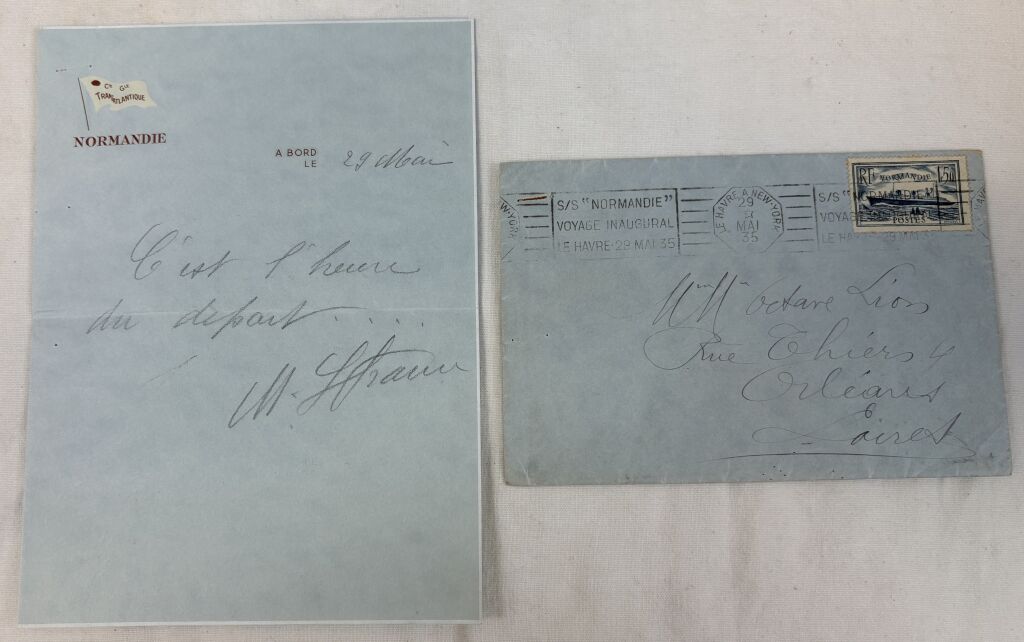 Cie Gle
TRANSATLANTIQUE
NORMANDIE
A BORD
LE 29 Mai
C'est l'heure
du départ. . . .
M.
W-YORK
S/S "NORMANDIE"
VOYAGE INAUGURAL
LE HAVRE-29 MAI 35
LE HAVRE A NEW-YORK
29
MAI
35
S/S "NORMANDIE"
VOYAGE INAUGURAL
LE HAVRE-29 MAI 35
RF NORMANDIE 1,50
POSTES
Octave Lion
Rue Thiers 4
Orléans
Loiret